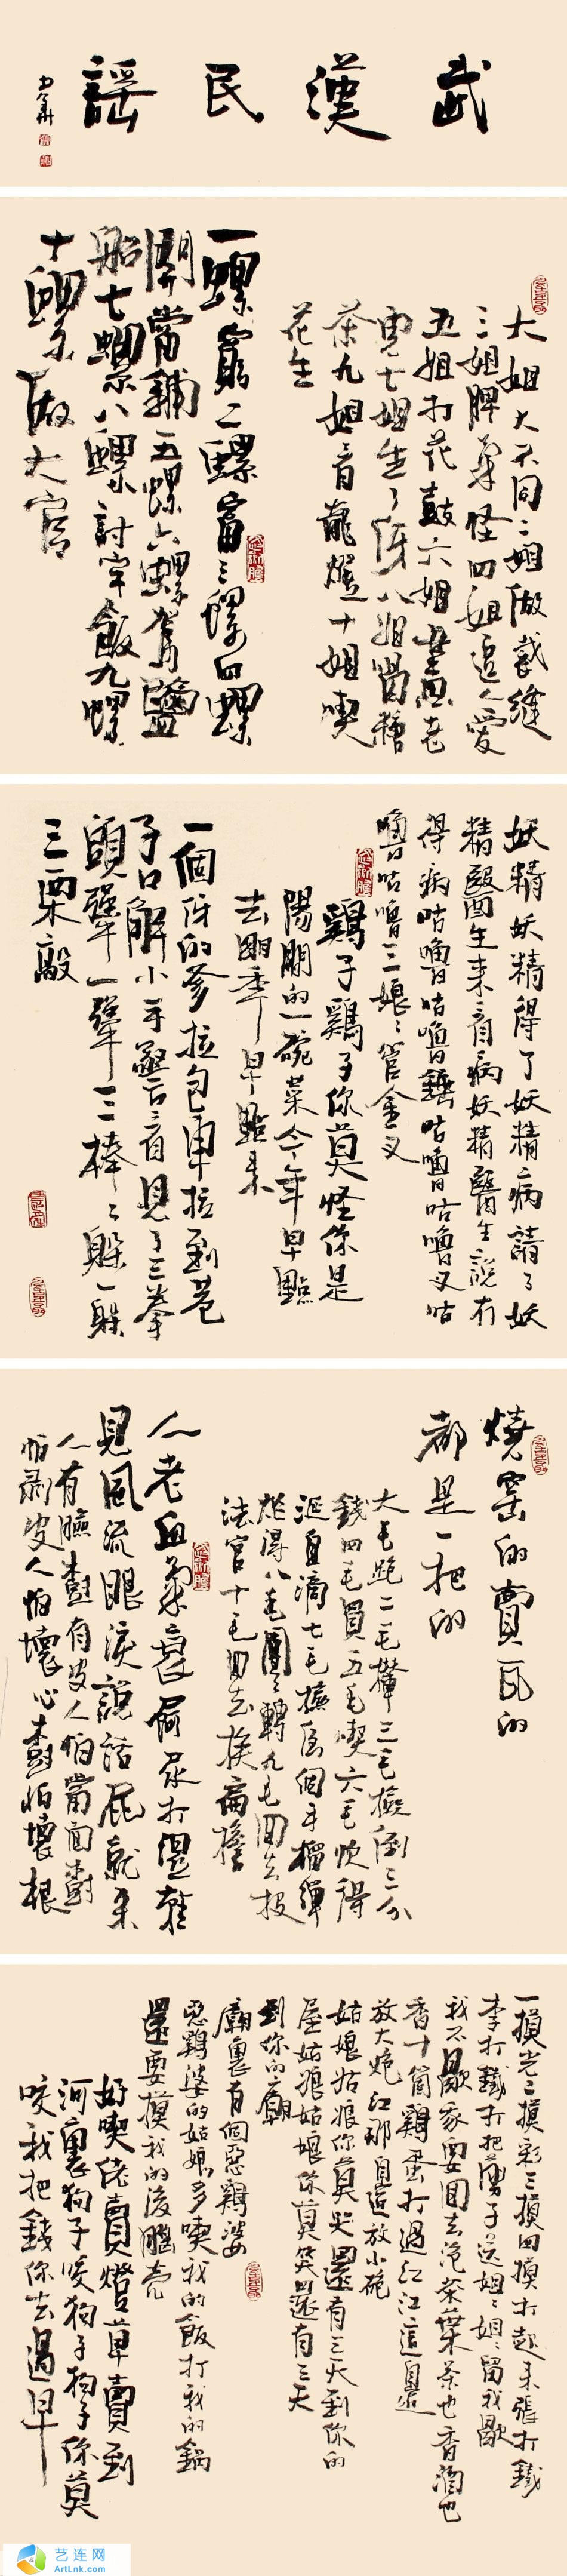 武漢民謠
大姐大不同二姐做裁縫
三姐脾氣怪四姐逗人愛
五姐打花鼓六姐
七姐生了伢八姐
茶九姐看龍燈十姐喫
花生
一螺窮二螺富三螺四螺
開當鋪五螺六螺駕鹽
船七螺八螺討牢飯九螺
十螺做大官
妖精妖精得了妖精病請了妖
精醫生來看病妖精醫生說有
得病咕嚕咕嚕錘咕嚕咕嚕叉咕
嚕咕嚕三娘娘管金叉
鷄子鷄子你莫怪你是
陽間的一碗菜今年早點
去明年早點來
一個伢的爹拉包車拉到巷
子口解小手警察看見了三拳
頭犟一犟三棒棒躲一躲
三栗敲
燒窑的賣瓦的
都是一把的
大毛跑二毛攆三毛撿倒三分
錢四毛買五毛喫六毛
七毛
八毛團團轉九毛回去投
法官十毛回去挨扁擔
人老血氣衰屙尿打濕鞋
見風流眼淚說話屁就來
人有臉樹有皮人怕當面樹
怕剥皮人怕壞心樹怕壞根
一摸光二摸彩三摸四摸打起來張打鐵
李打鐵打把剪子送姐姐姐姐留我歇
我不歇我要回去泡茶葉茶也香酒也
香十箇鷄蛋打過江江這邊
放大炮江那邊放小炮
姑娘姑娘你莫哭還有三天到你的
屋姑娘姑娘你莫笑還有三天
到你的廟
廟裏有個惡鷄婆
惡鷄婆的姑娘多喫我的飯打我的鍋
還要摸我的後腦壳
好喫佬賣燈草賣到
河裏狗子咬狗子狗子你莫
咬我把錢你去過早
艺连网
ArtLnk.com